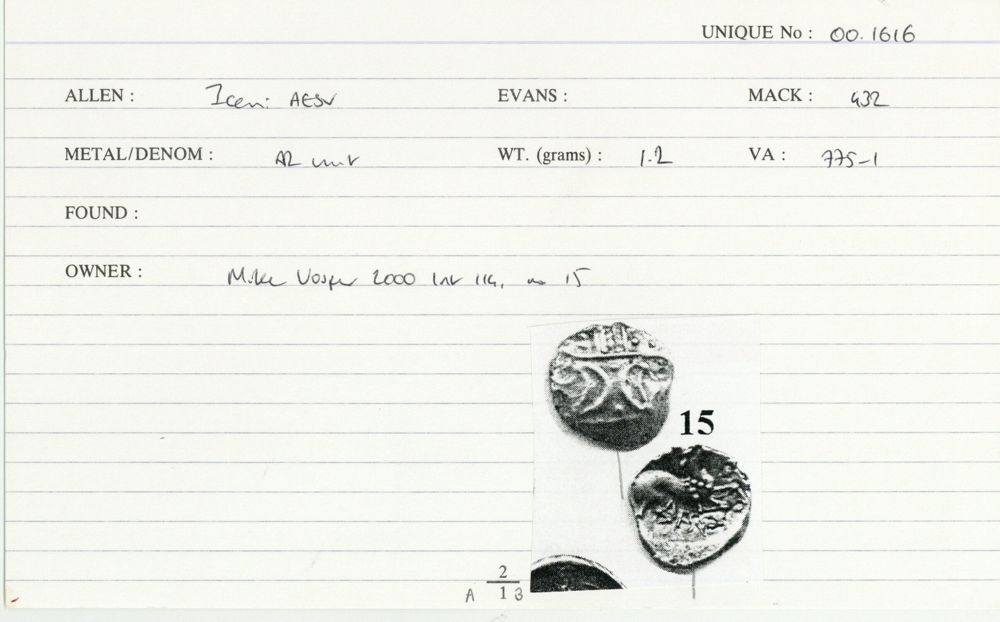 UNIQUE No : 00.1616
ALLEN : Iceni AESV EVANS : MACK : 432
METAL/DENOM : AR unit WT. (grams) : 1.2 VA : 775-1
FOUND :
OWNER : Mike Vosper 2000 114, no 15
15
2
A 1 3